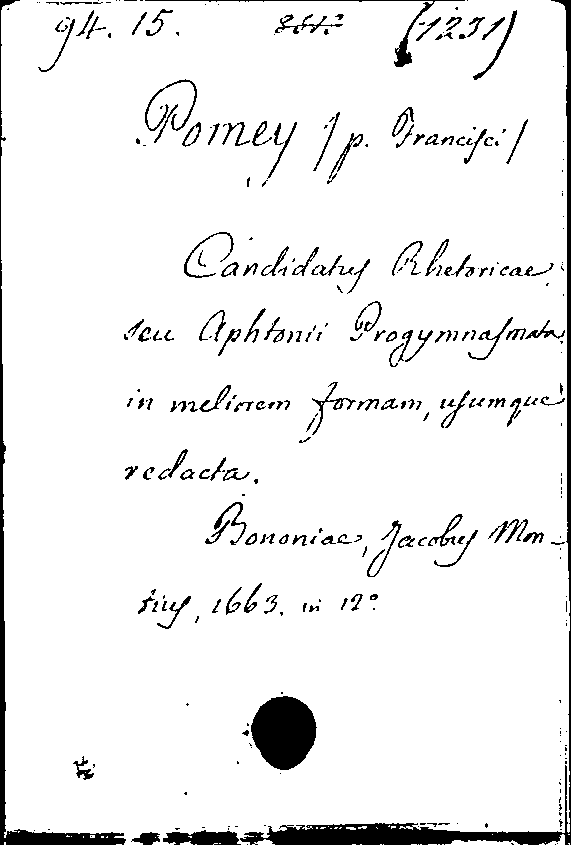 94. 15. (1231)
Pomey / p. Francisci /
Candidatus Rhetoricae
seu Aphtonii Progymnasmata
in meliorem formam, usumque
redacta.
Bononiae, Jacobus Mon-
tius, 1663. in 12º